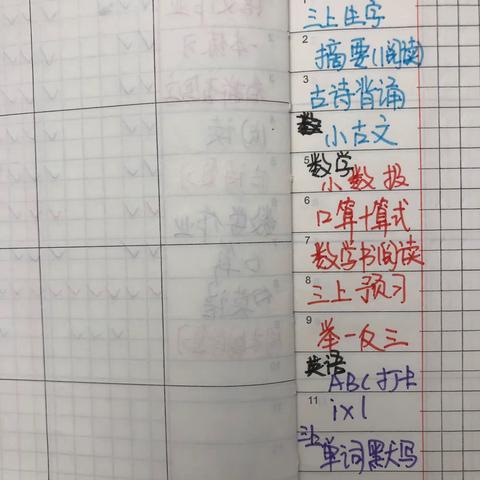 1 三上生字
2 摘要(阅读)
3 古诗背诵
小古文
5 数学
小数报
6 口算+算式
7 数学书阅读
8 三上预习
9 举一反三
英语
ABC打卡
11 ixl
三上单词默写